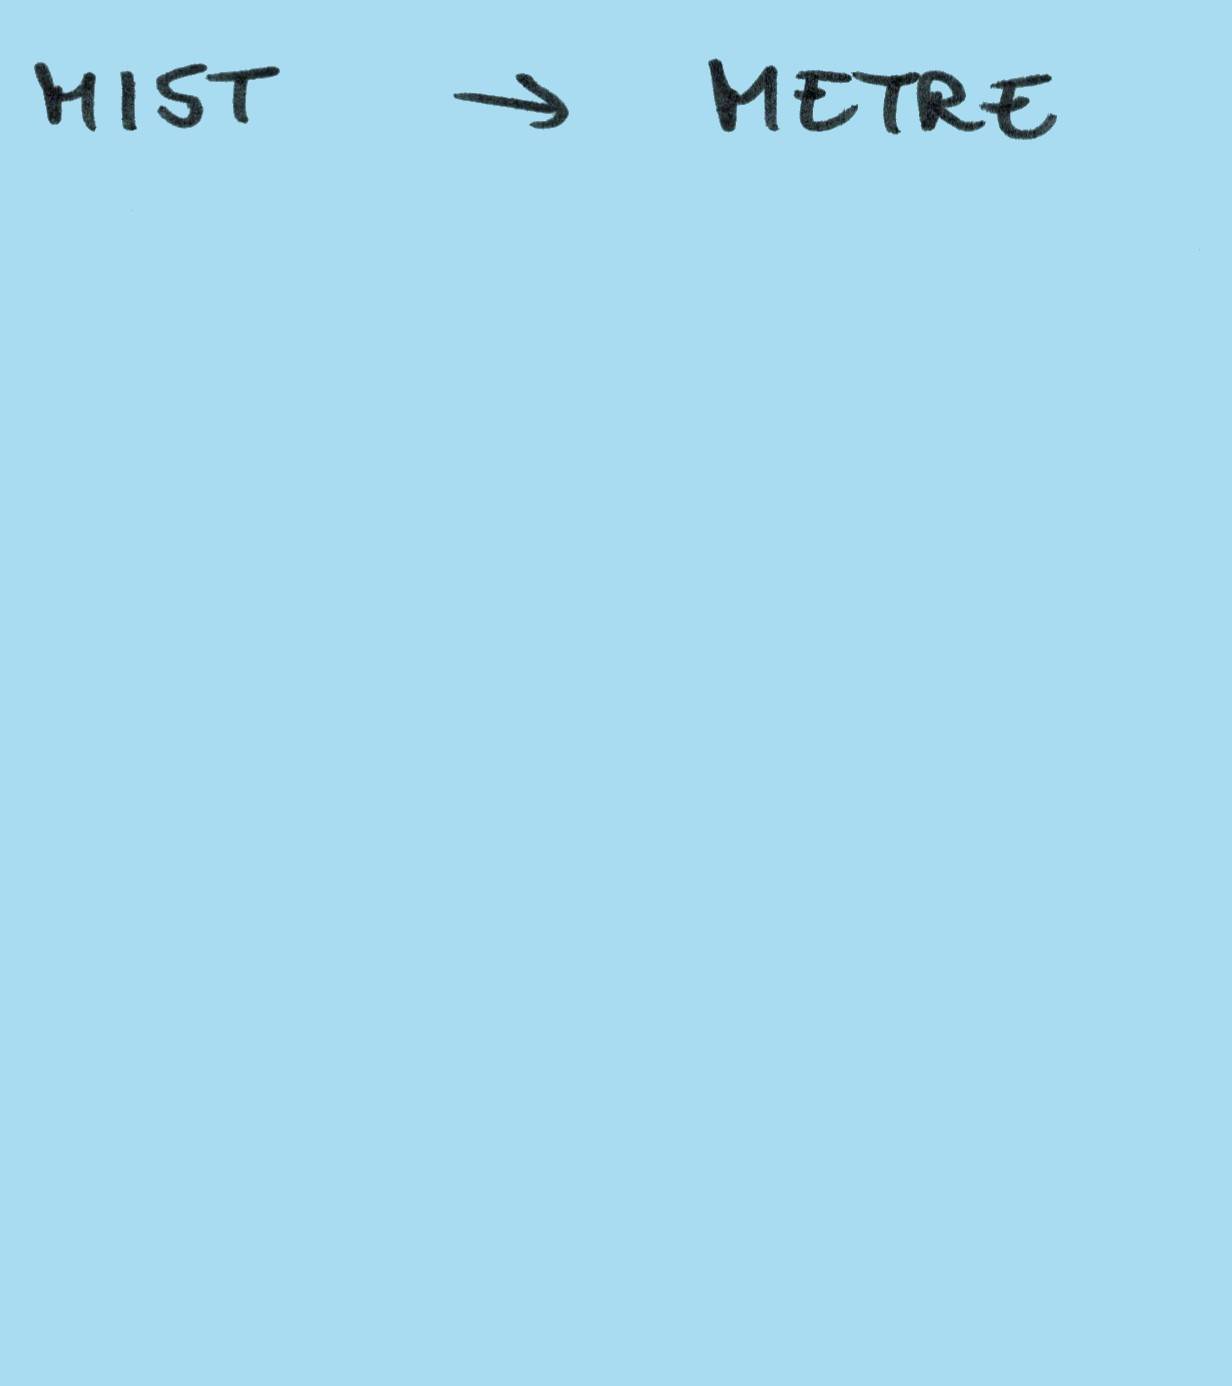 MIST → METRE